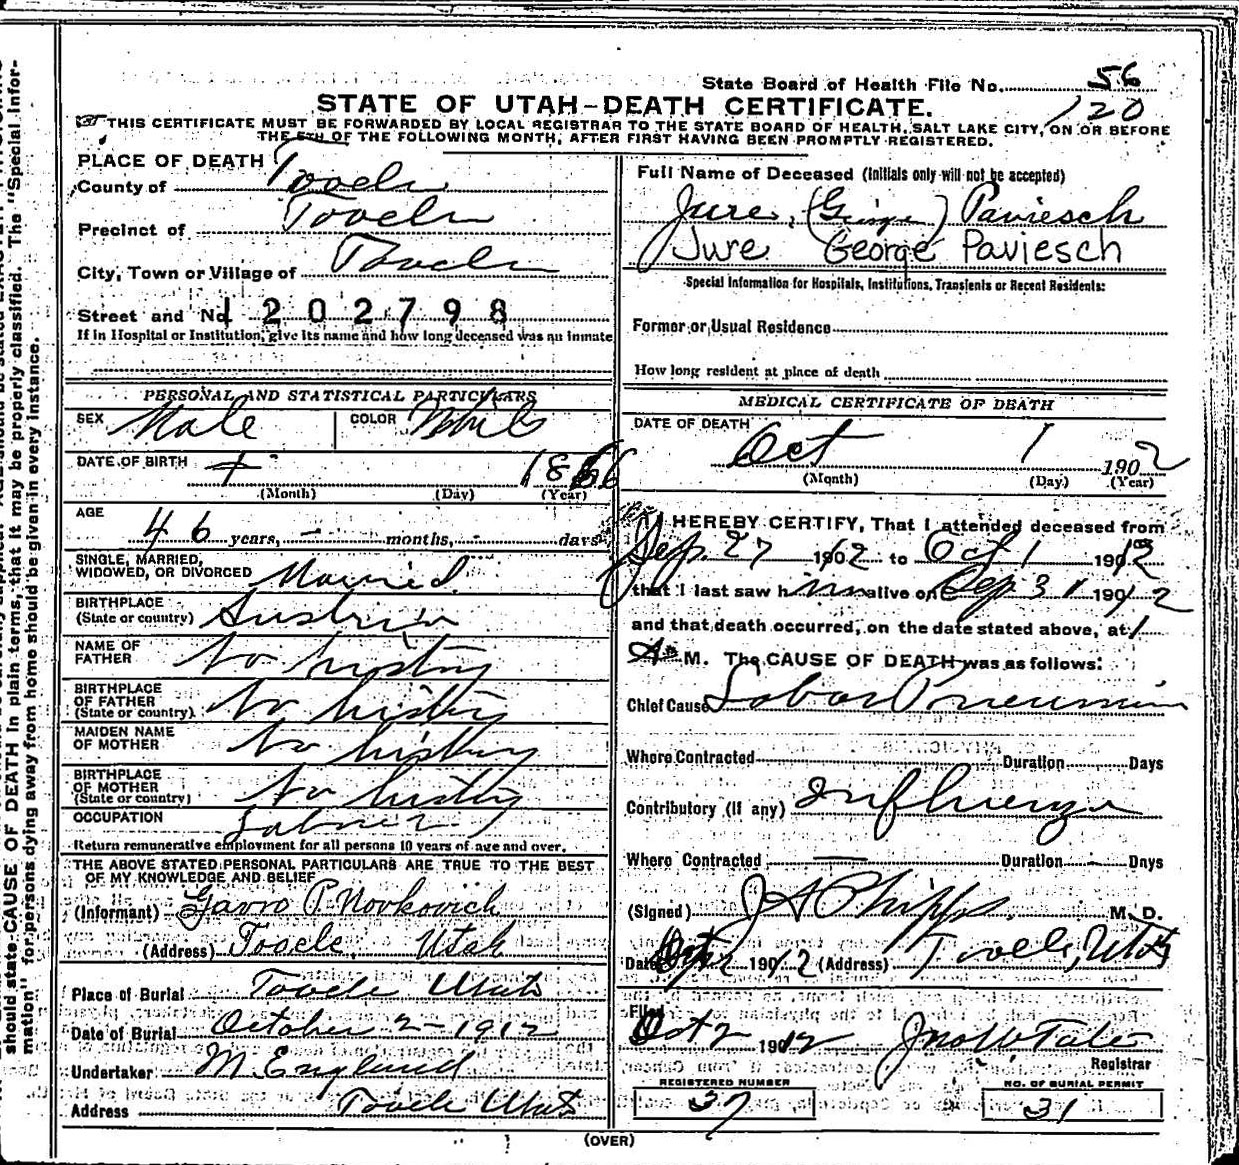 State Board of Health File No. 56
120
STATE OF UTAH–DEATH CERTIFICATE.
THIS CERTIFICATE MUST BE FORWARDED BY LOCAL REGISTRAR TO THE STATE BOARD OF HEALTH, SALT LAKE CITY, ON OR BEFORE
THE 5TH OF THE FOLLOWING MONTH, AFTER FIRST HAVING BEEN PROMPTLY REGISTERED.
PLACE OF DEATH
County of Tooele
Precinct of Tooele
City, Town or Village of Tooele
Street and No.
1202798
If in Hospital or Institution, give its name and how long deceased was an inmate
PERSONAL AND STATISTICAL PARTICULARS
SEX Male COLOR White
DATE OF BIRTH 1866
(Month) (Day) (Year)
AGE
46 years, - months, - days
SINGLE, MARRIED,
WIDOWED, OR DIVORCED Married
BIRTHPLACE
(State or country) Austria
NAME OF
FATHER No history
BIRTHPLACE
OF FATHER
(State or country) No history
MAIDEN NAME
OF MOTHER No history
BIRTHPLACE
OF MOTHER
(State or country) No history
OCCUPATION Laborer
Return remunerative employment for all persons 10 years of age and over.
THE ABOVE STATED PERSONAL PARTICULARS ARE TRUE TO THE BEST
OF MY KNOWLEDGE AND BELIEF
(Informant) Gavro P. Novkovich
(Address) Tooele, Utah
Place of Burial Tooele Utah
Date of Burial October 2- 1912
Undertaker M. Englund
Address Tooele Utah
Full Name of Deceased (Initials only will not be accepted)
Jure (George) Paviesch
Jure George Paviesch
Special Information for Hospitals, Institutions, Transients or Recent Residents:
Former or Usual Residence
How long resident at place of death
MEDICAL CERTIFICATE OF DEATH
DATE OF DEATH
Oct 1 1902
(Month) (Day) (Year)
I HEREBY CERTIFY, That I attended deceased from
Sep. 27 1912 to Oct 1 1912
that I last saw him alive on Sep 31 1912
and that death occurred, on the date stated above, at 1
A M. The CAUSE OF DEATH was as follows:
Chief Cause Lobar Pneumonia
Where Contracted Duration Days
Contributory (if any) Influenza
Where Contracted — Duration - Days
(Signed) J A Phipps M. D.
Date Oct 2 1912 (Address) Tooele, Utah
Filed
Oct 2 1912 Jno W Tate
Registrar
REGISTERED NUMBER
37
NO. OF BURIAL PERMIT
31
(OVER)
should state CAUSE OF DEATH in plain terms, that it may be properly classified. The "Special Infor-
mation" for persons dying away from home should be given in every instance.